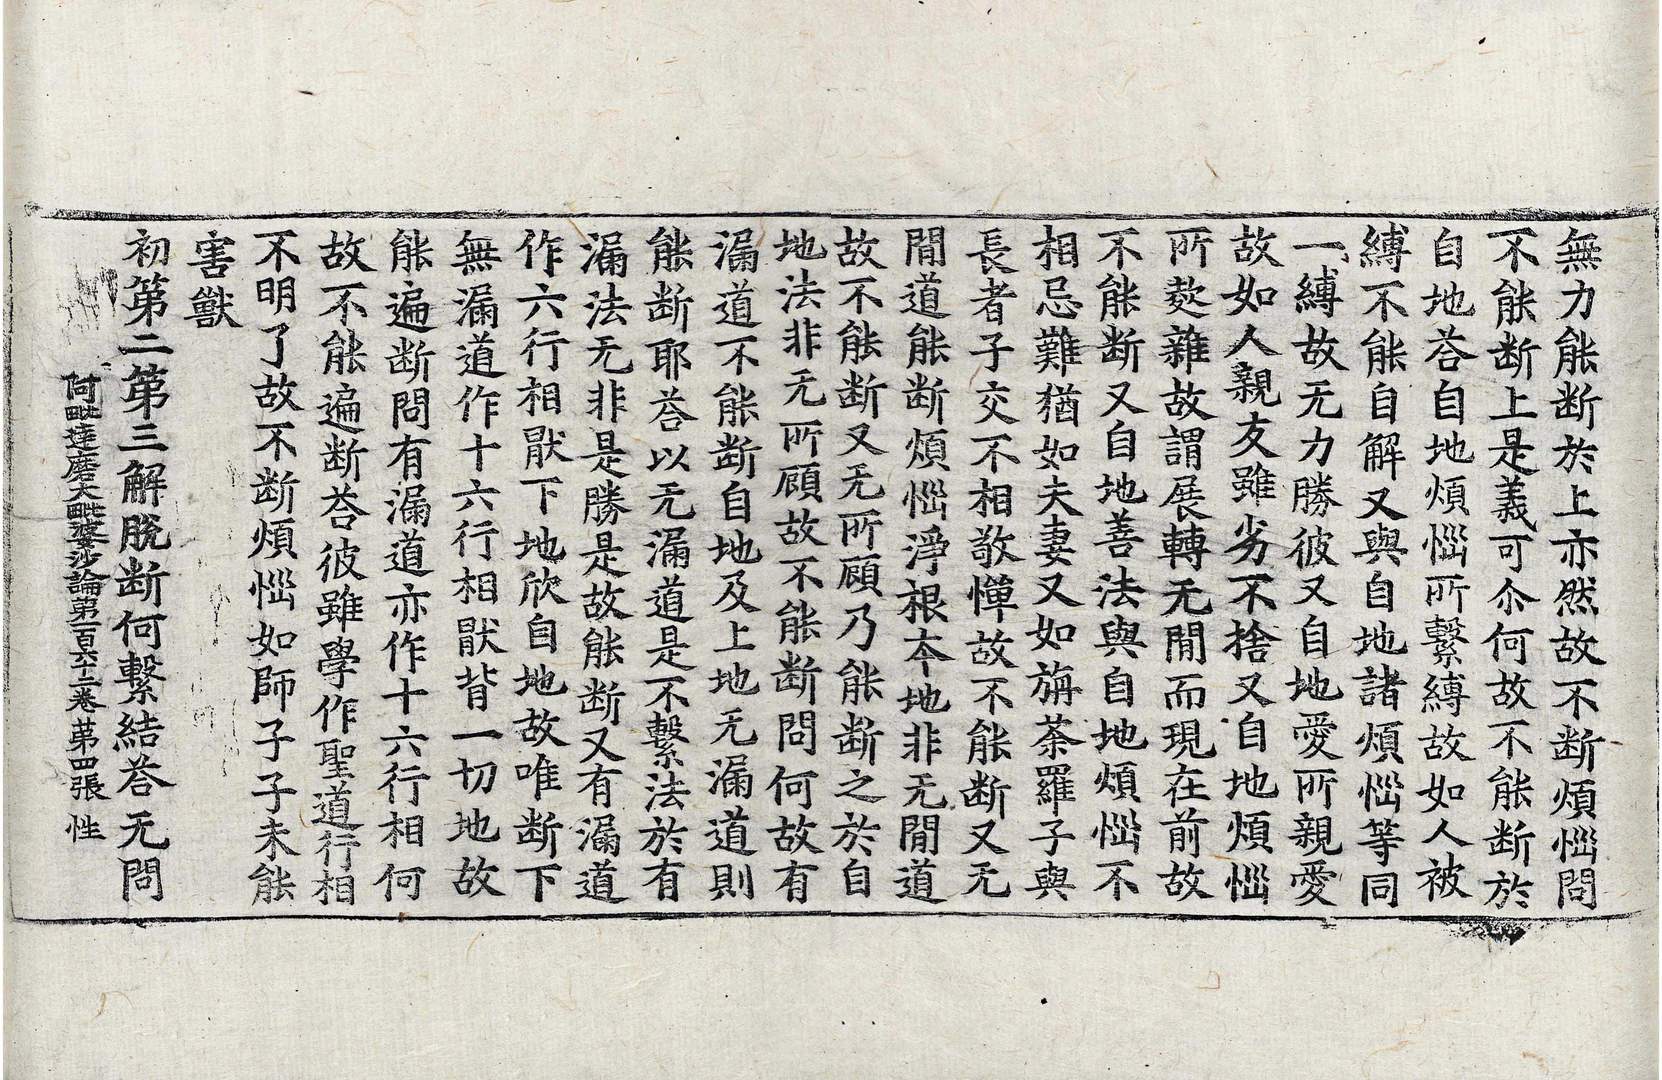 無力能断於上亦然故不断煩惱問
不能断上是義可尒何故不能断於
自地荅自地煩惱所繫縛故如人被
縛不能自解又與自地諸煩惱等同
一縛故无力勝彼又自地愛所親愛
故如人親友雖劣不捨又自地煩惱
所㱿雜故謂展轉无閒而現在前故
不能断又自地善法與自地煩惱不
相忌難猶如夫妻又如旃荼羅子與
長者子交不相敬憚故不能断又无
閒道能断煩惱淨根夲地非无閒道
故不能断又无所顧乃能断之於自
地法非无所顧故不能断問何故有
漏道不能断自地及上地无漏道則
能断耶荅以无漏道是不繫法於有
漏法无非是勝是故能断又有漏道
作六行相猒下地欣自地故唯断下
無漏道作十六行相猒背一切地故
能遍断問有漏道亦作十六行相何
故不能遍断荅彼雖學作聖道行相
不明了故不断煩惱如師子子未能
害獸
初第二第三解脫断何繫結荅无問
阿毗達磨大毗婆沙論第一百六十二卷 第四張 性